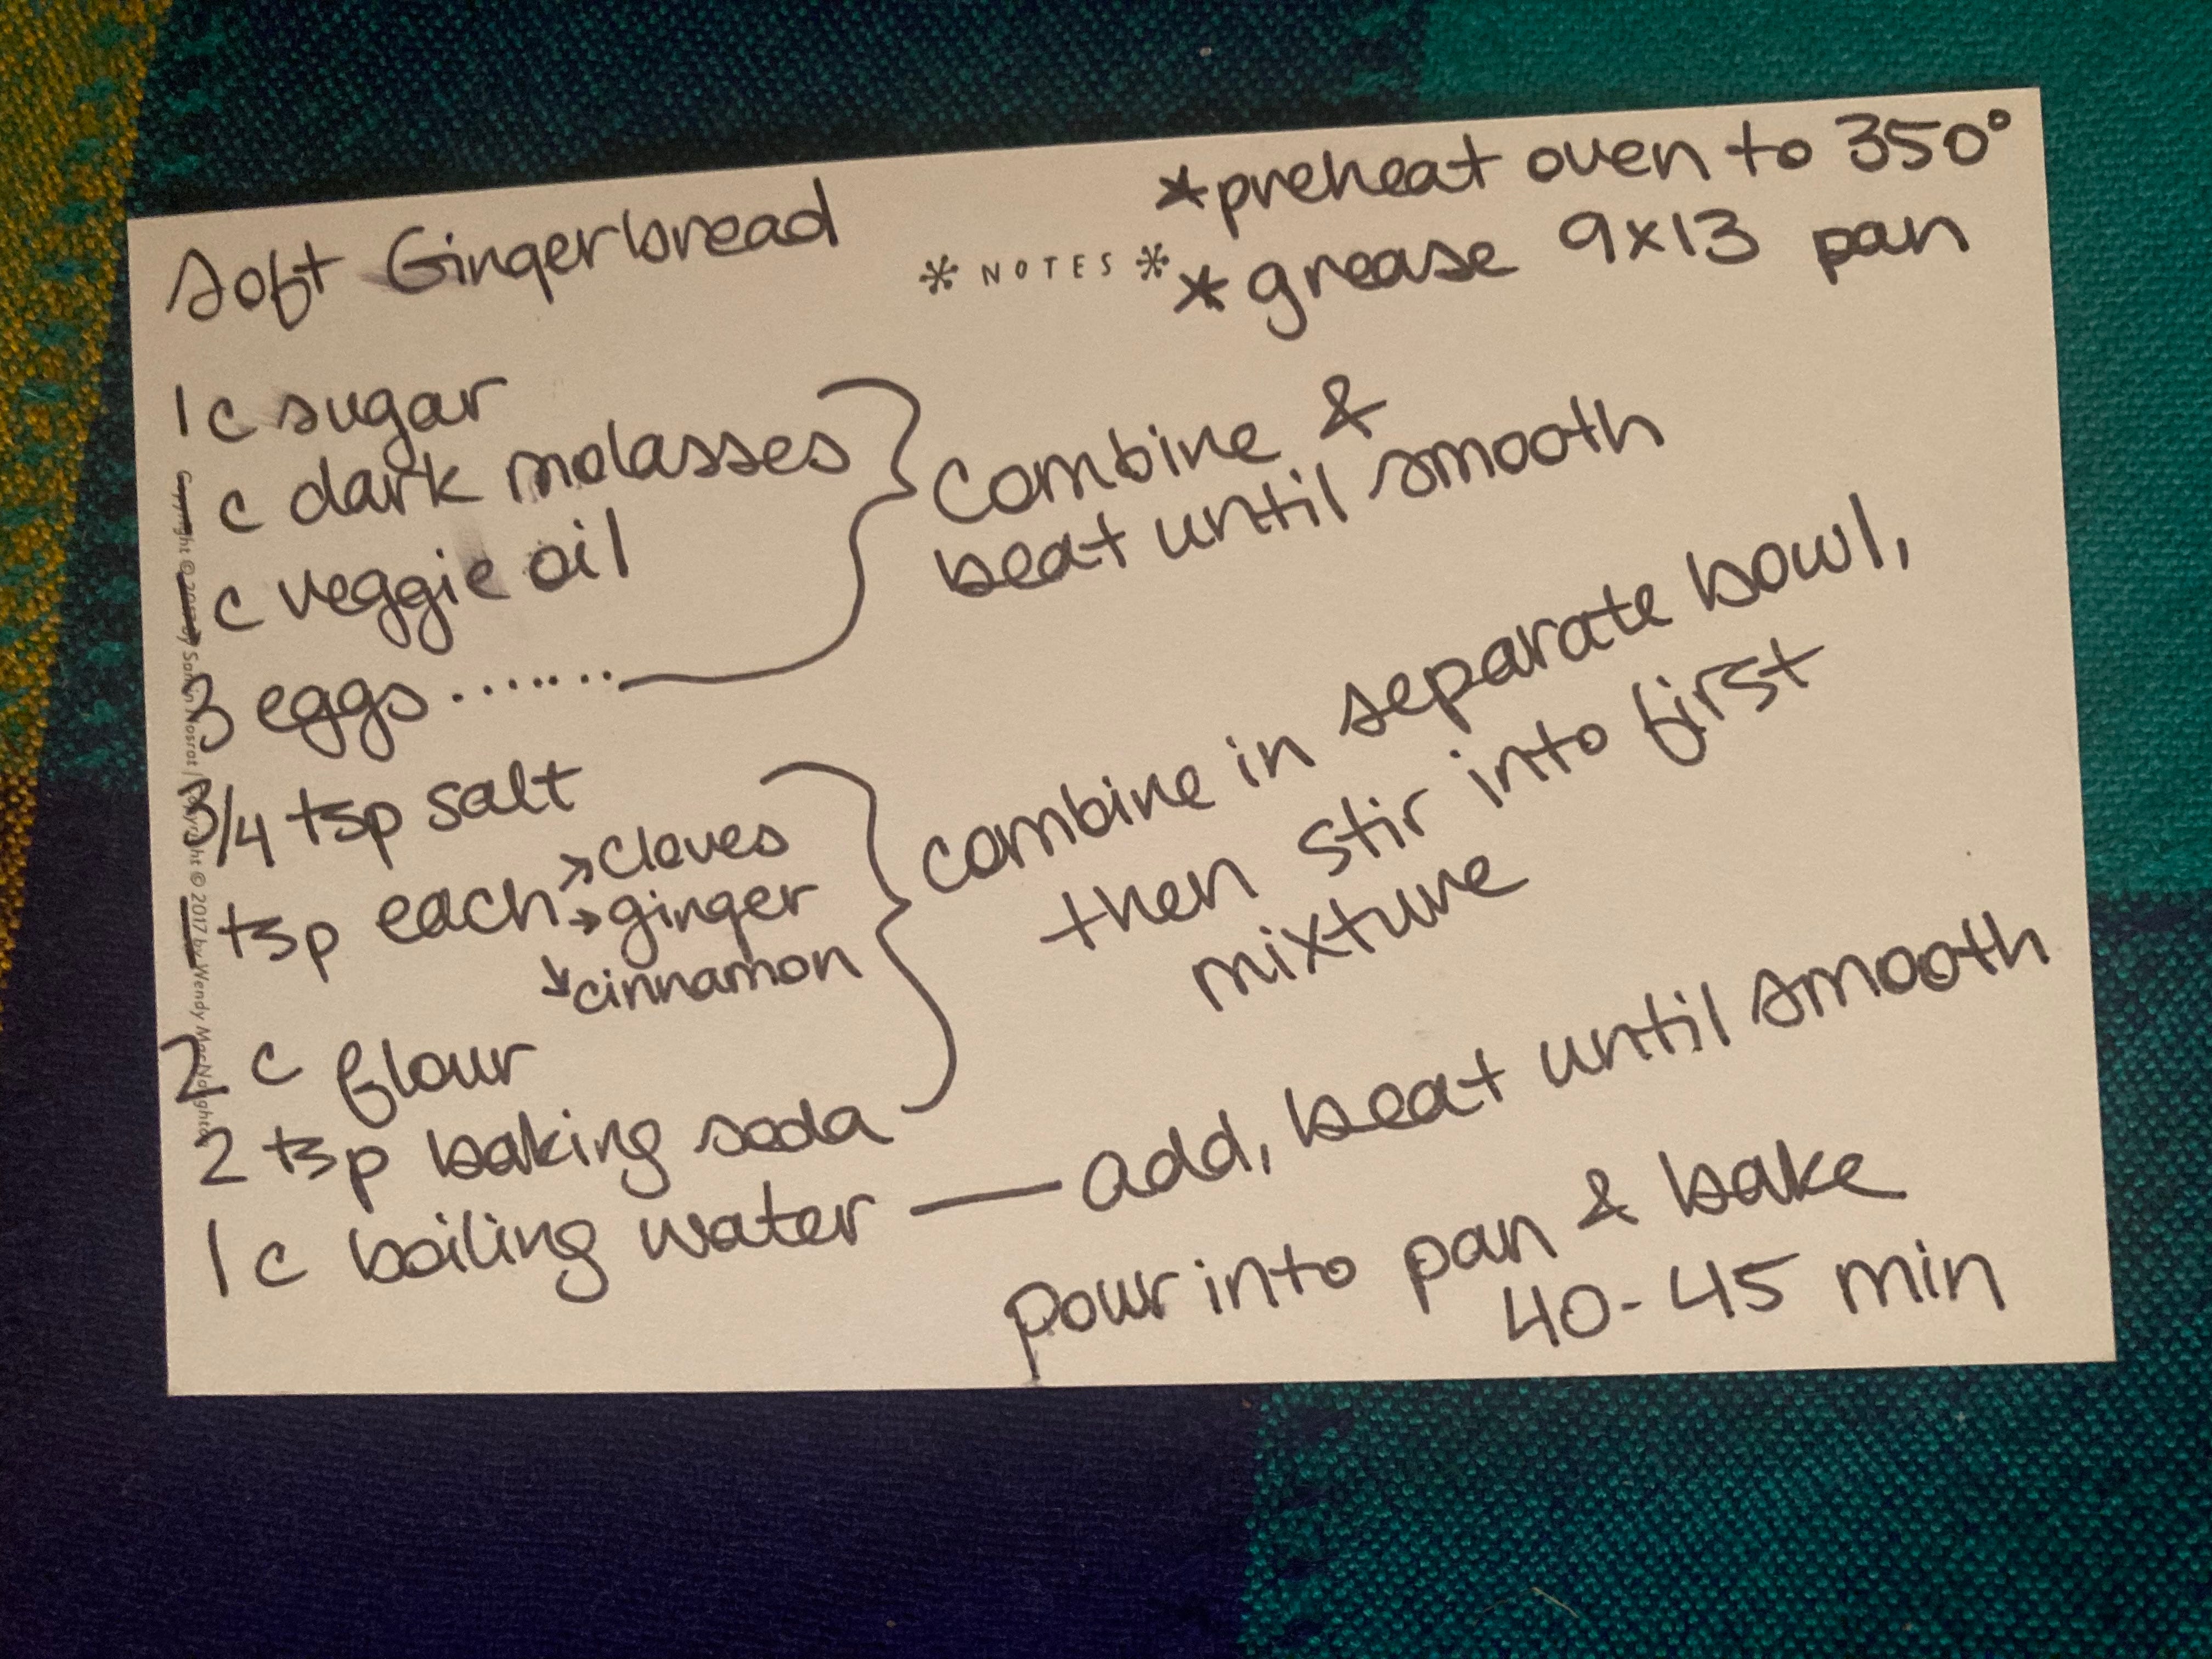 Soft Gingerbread
* NOTES *
*preheat oven to 350°
*grease 9x13 pan
1c sugar
1 c dark molasses
1 c veggie oil
3 eggs.......
combine &
beat until smooth
3/4 tsp salt
1 tsp each → cloves
→ ginger
↘ cinnamon
2 c flour
2 tsp baking soda
combine in separate bowl,
then stir into first
mixture
1 c boiling water — add, beat until smooth
pour into pan & bake
40-45 min
Copyright © 2017 by Wendy MacNaughton